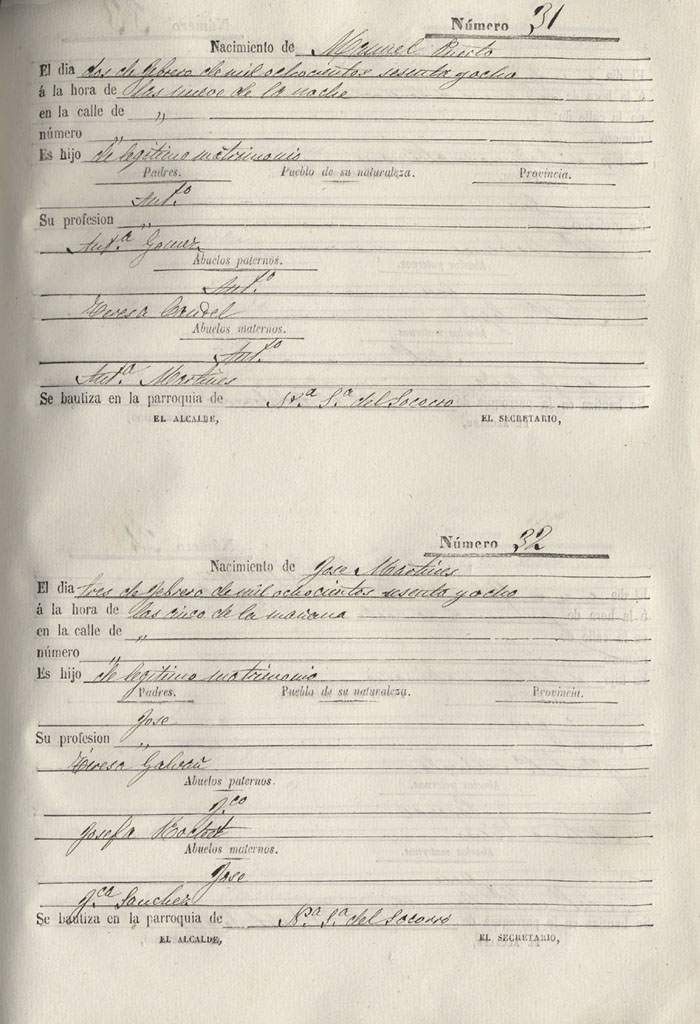 Número 31
Nacimiento de Manuel Puerto
El dia dos de febrero de mil ochocientos sesenta y ocho
á la hora de las nueve de la noche
en la calle de "
número "
Es hijo de legitimo matrimonio
Padres. Pueblo de su naturaleza. Provincia.
Ant.º
Su profesion "
Ant.ª Gomez
Abuelos paternos.
Ant.º
Teresa Candel
Abuelos maternos.
Ant.º
Ant.ª Martines
Se bautiza en la parroquia de N.ª S.ª del Socorro
EL ALCALDE, EL SECRETARIO,
Número 32
Nacimiento de Jose Martines
El dia tres de febrero de mil ochocientos sesenta y ocho
á la hora de las cinco de la mañana
en la calle de "
número "
Es hijo de legitimo matrimonio
Padres. Pueblo de su naturaleza. Provincia.
Jose
Su profesion "
Teresa Galvañ
Abuelos paternos.
F.co
Josefa
Abuelos maternos.
Jose
F.ca Sanchez
Se bautiza en la parroquia de N.ª S.ª del Socorro
EL ALCALDE, EL SECRETARIO,